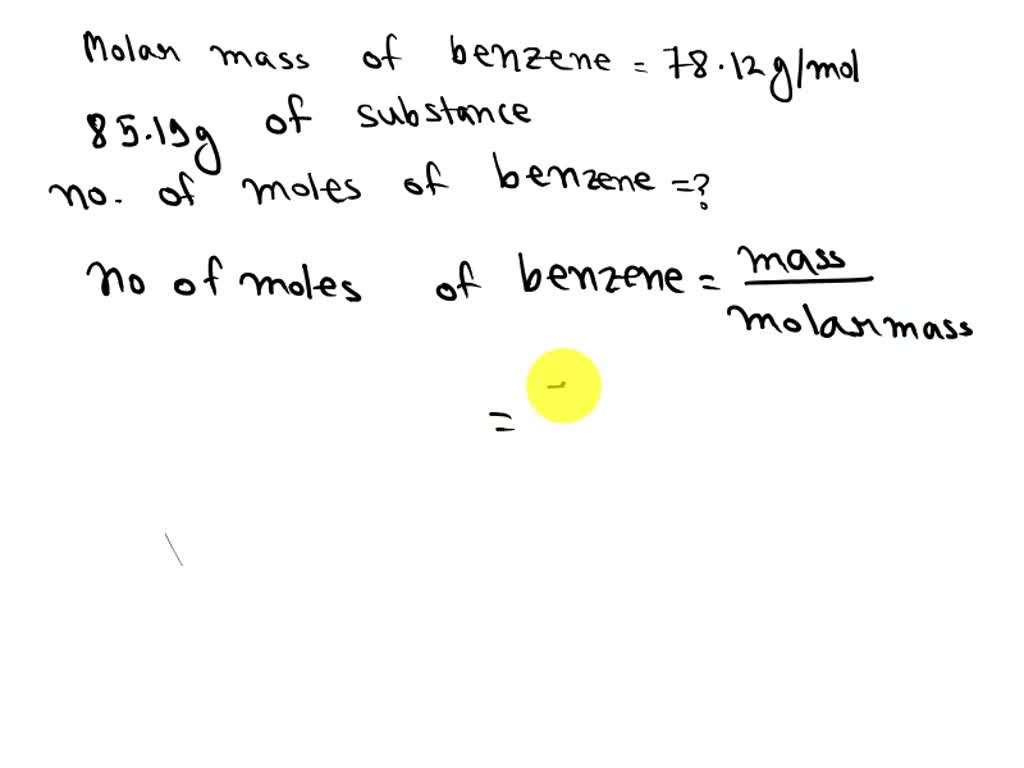 Molar mass of benzene = 78.12 g/mol
85.19g of substance
no. of moles of benzene = ?
no of moles of benzene = mass
molar mass
=